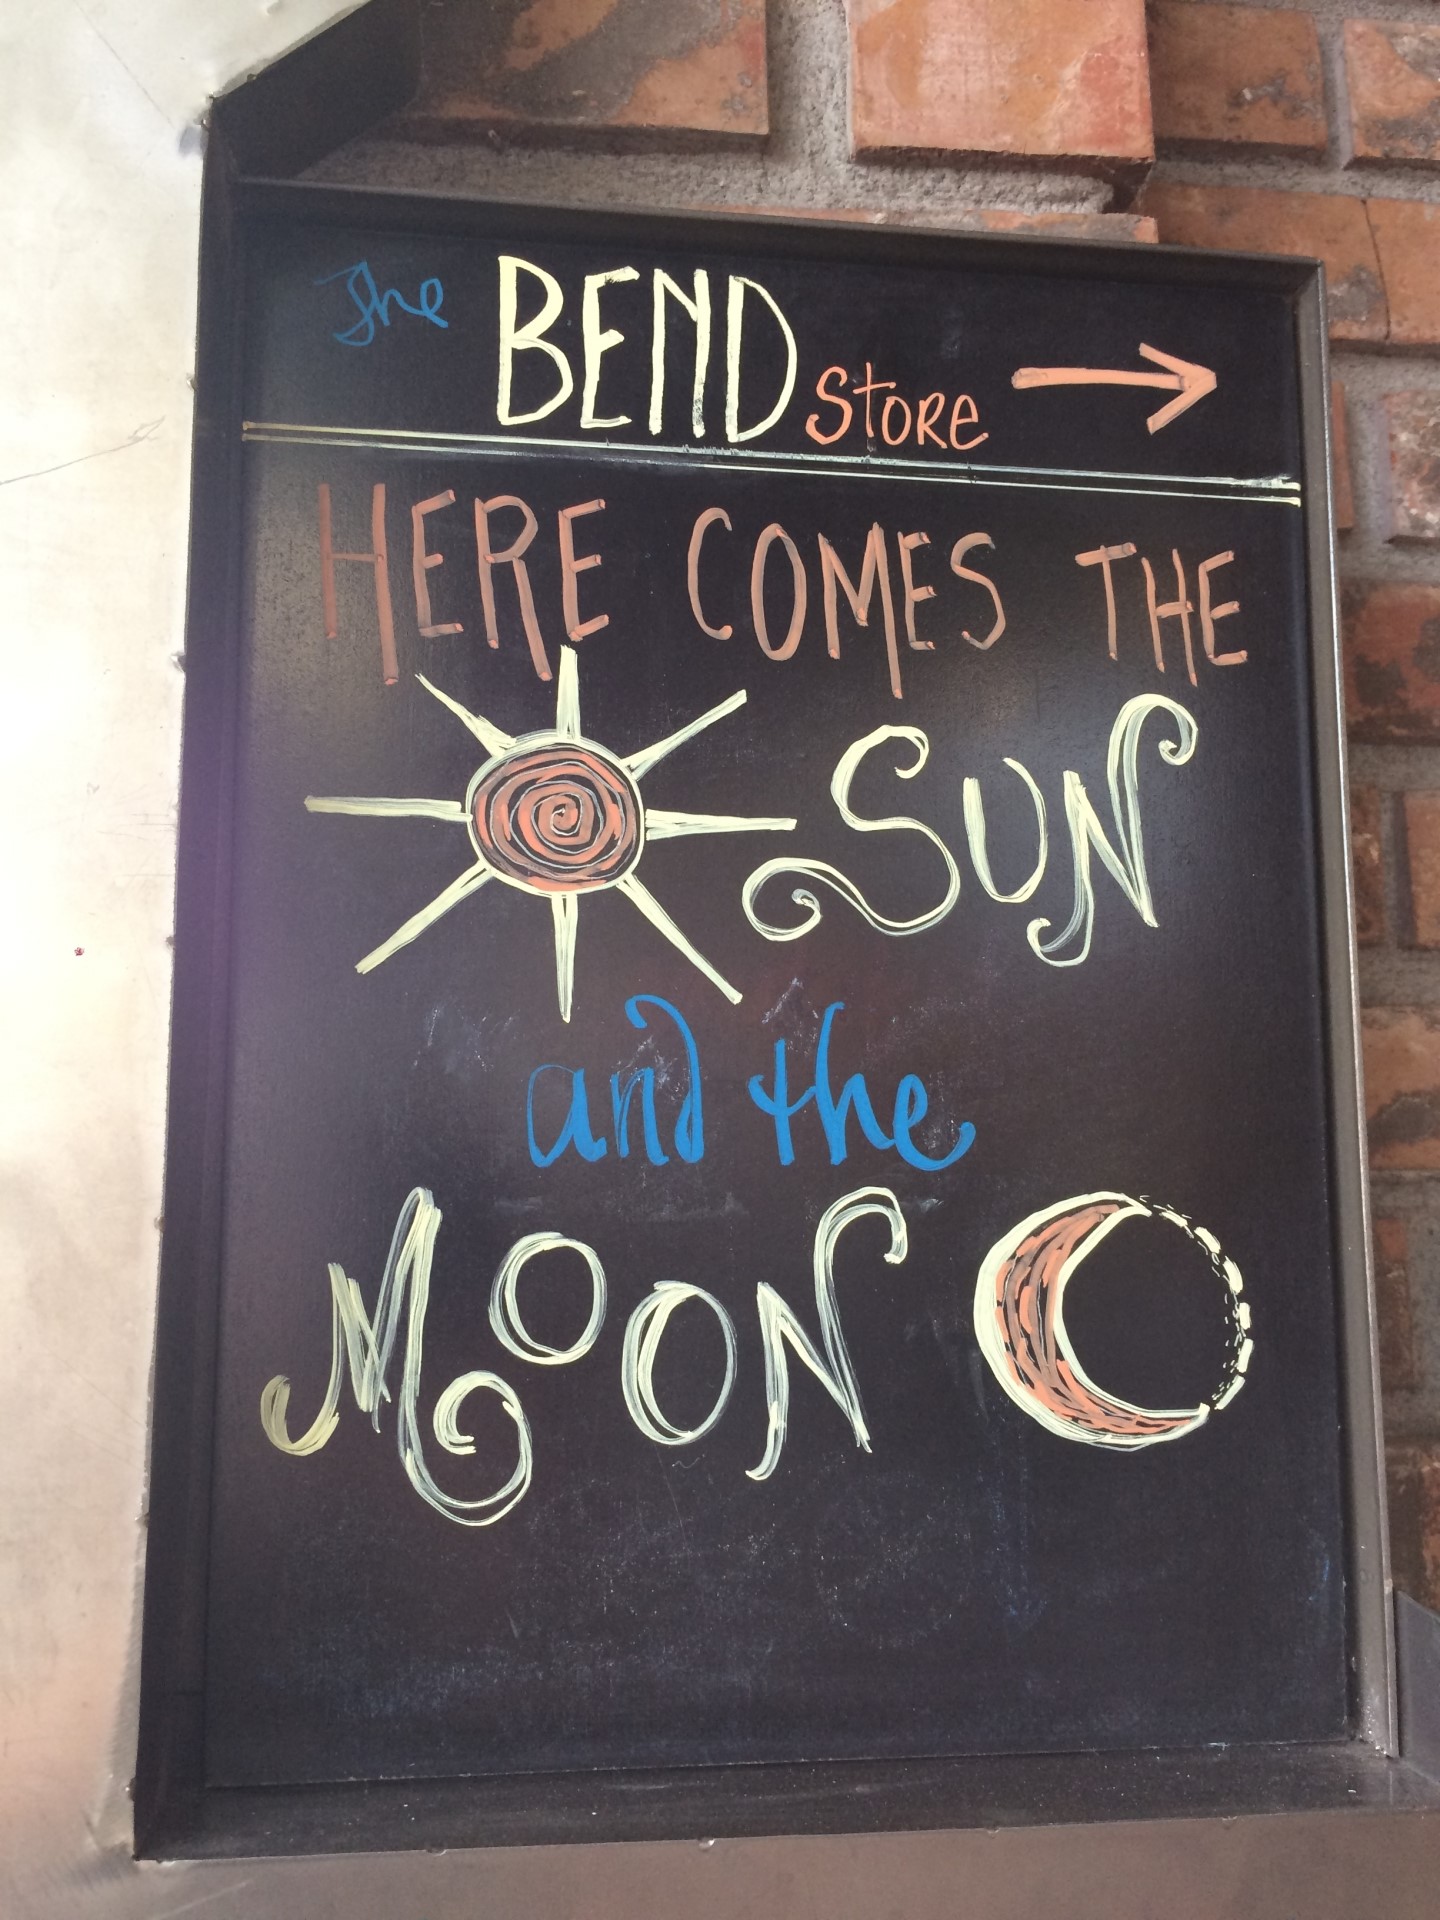 The BEND Store
HERE COMES THE
SUN
and the
MOON